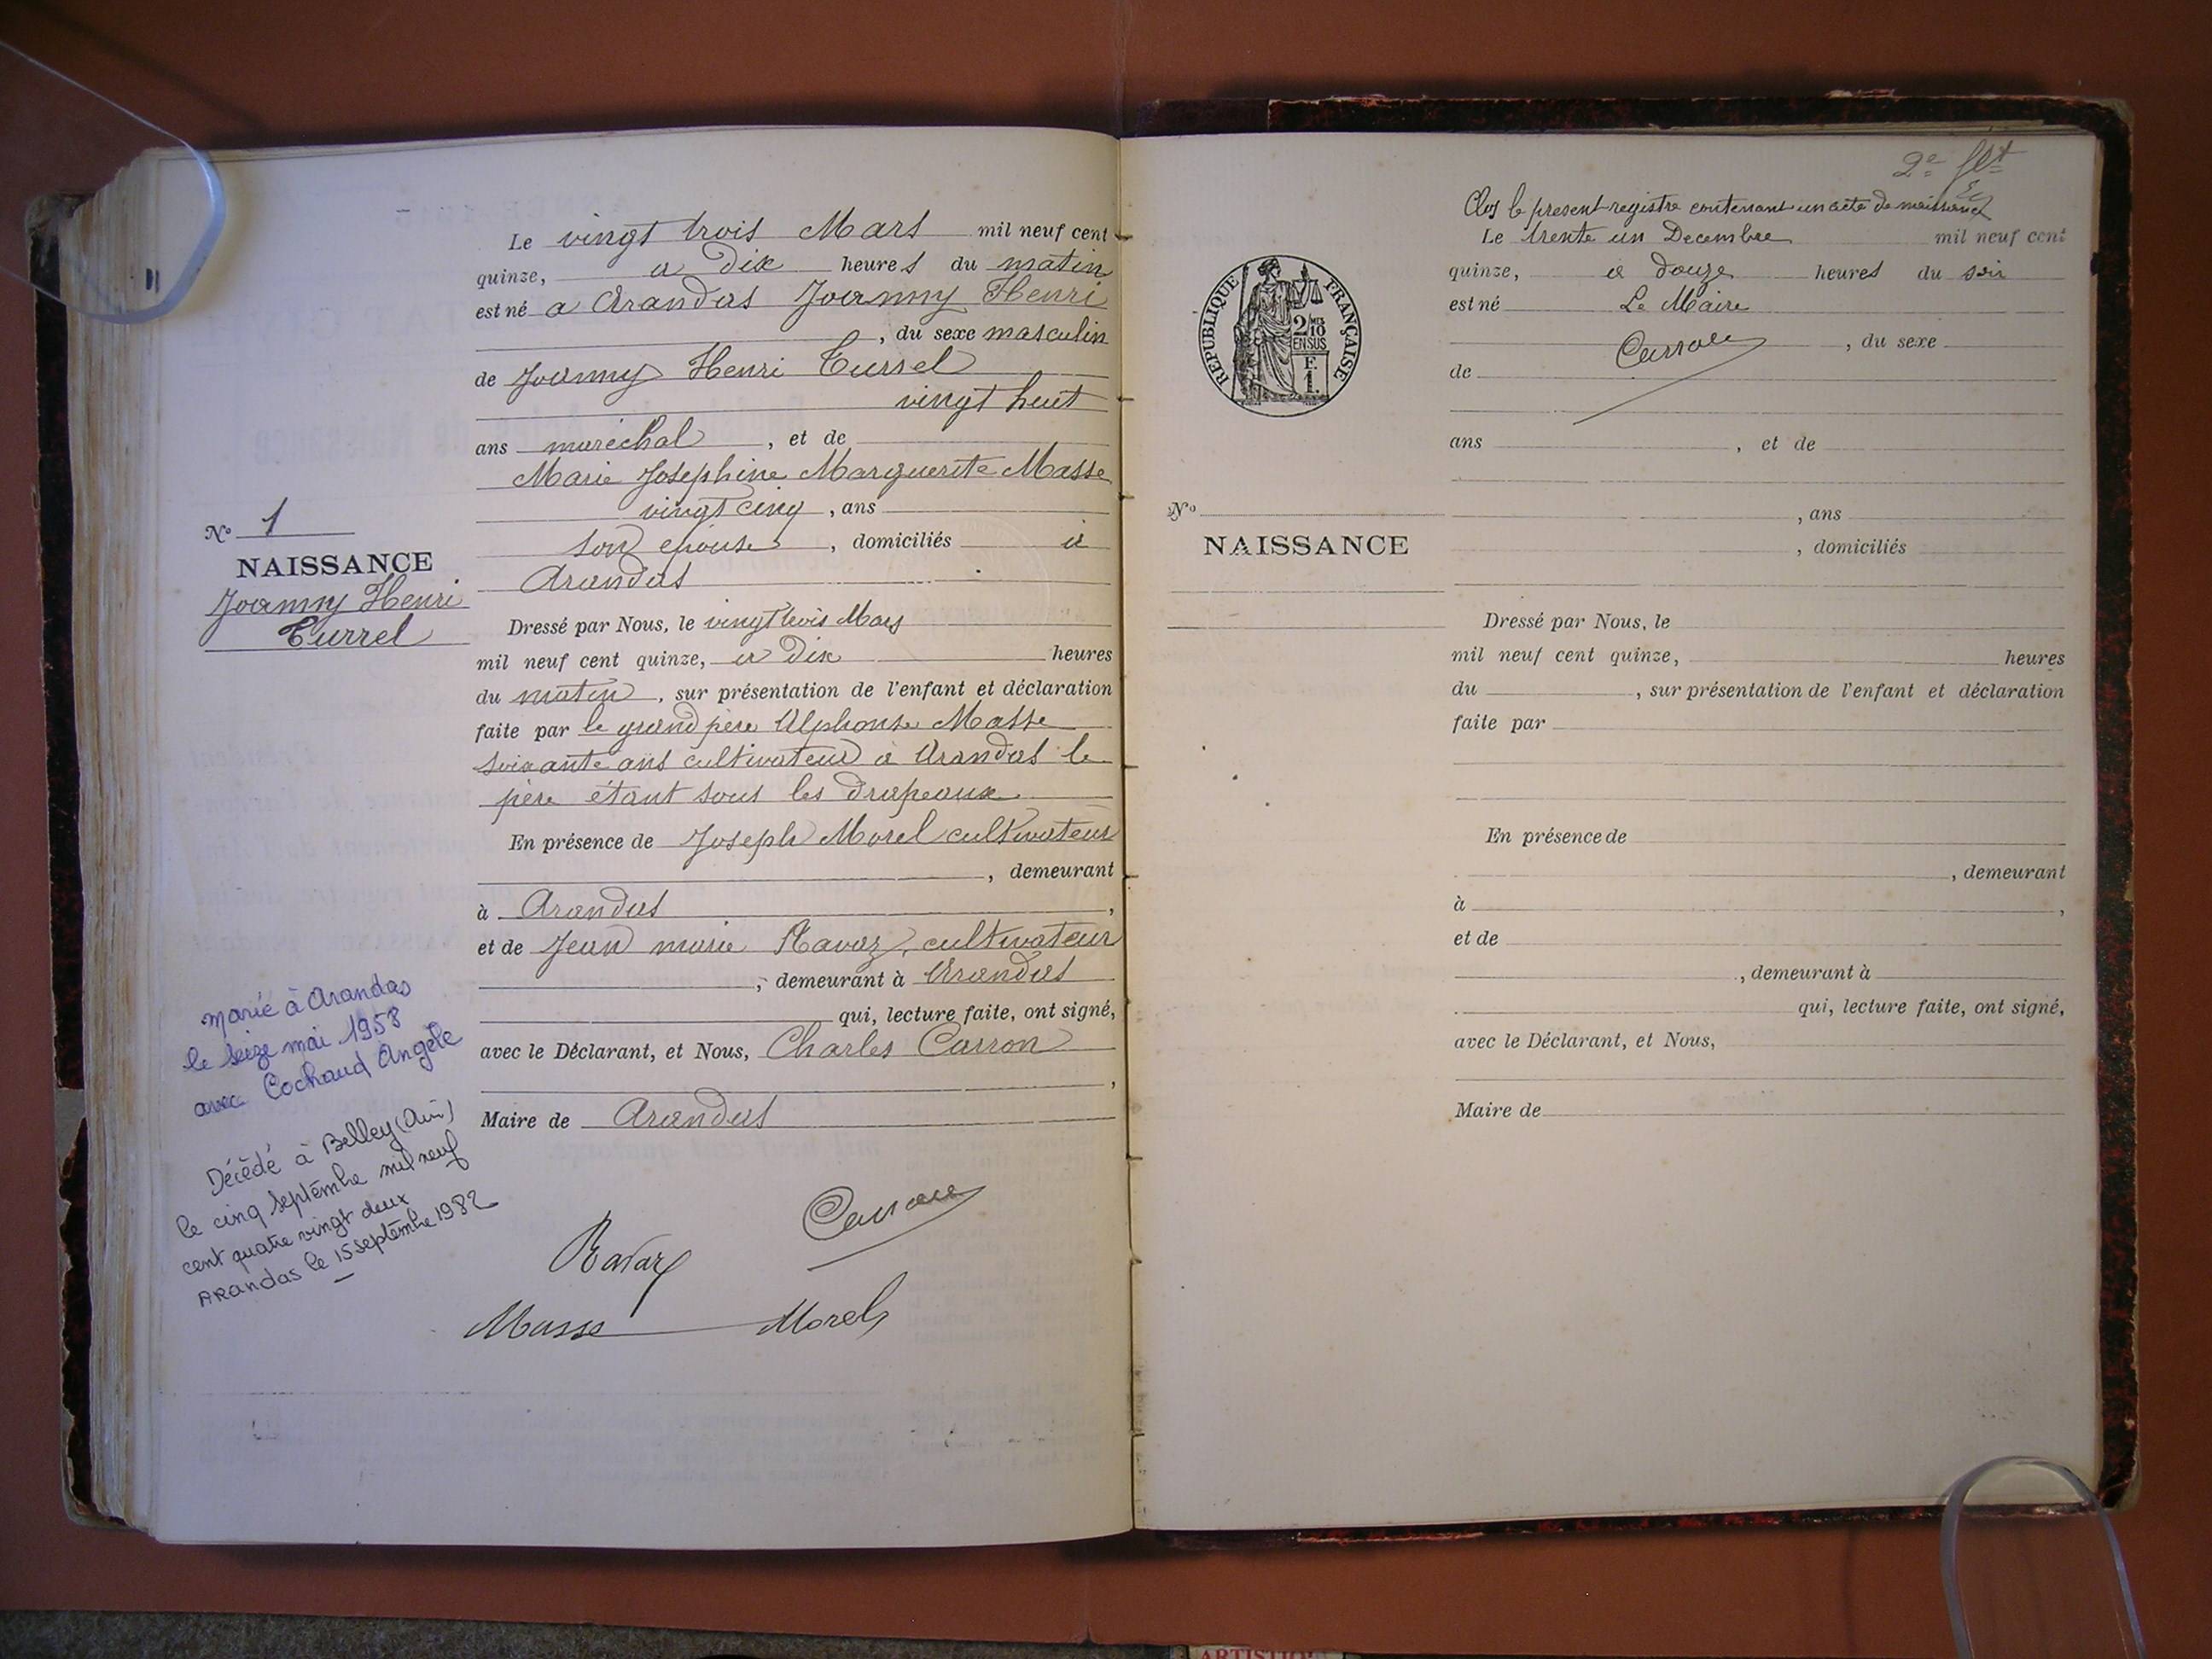 Le vingt trois Mars mil neuf cent
quinze, a dix heures du matin
est né a Arandas Joanny Henri
, du sexe masculin
de Joanny Henri Turrel
vingt huit
ans maréchal , et de
Marie Josephine Marguerite Masse
vingt cinq , ans
son épouse , domiciliés à
Arandas
N° 1
NAISSANCE
Joanny Henri
Turrel
Dressé par Nous, le vingt trois Mars
mil neuf cent quinze, a dix heures
du matin , sur présentation de l'enfant et déclaration
faite par le grand père Alphonse Masse
soixante ans cultivateur à Arandas le
père étant sous les drapeaux
En présence de Joseph Morel cultivateur
, demeurant
à Arandas ,
et de Jean marie Ravaz, cultivateur
, demeurant à Arandas
qui, lecture faite, ont signé,
avec le Déclarant, et Nous, Charles Carron
,
Maire de Arandas
marié à Arandas
le seize mai 1958
avec Cochaud Angèle
Décédé à Belley (Ain)
le cinq septembre mil neuf
cent quatre vingt deux
ARandas le 15 septembre 1982
Ravaz
Carron
Masse
Morel
2e
Clos le present registre contenant un acte de naissance
Le trente un Decembre mil neuf cent
quinze, a douze heures du soir
est né Le Maire
Carron , du sexe
de
ans , et de
, ans
, domiciliés
RÉPUBLIQUE FRANÇAISE
2/10
EN SUS
F.
1.
N°
NAISSANCE
Dressé par Nous, le
mil neuf cent quinze, heures
du , sur présentation de l'enfant et déclaration
faite par
En présence de
, demeurant
à ,
et de
, demeurant à
qui, lecture faite, ont signé,
avec le Déclarant, et Nous,
Maire de